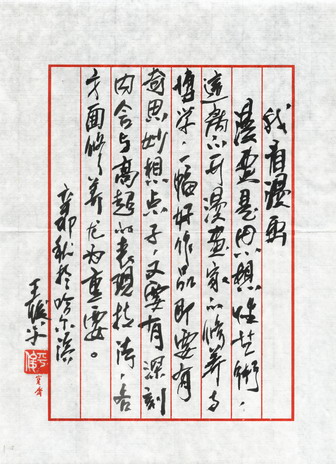 我看漫画
漫画是思想性艺术，
这离不开漫画家的修养与
博学，一幅好作品即要有
奇思妙想点子，又要有深刻
内含与高超的表现技法，各
方面修养尤为重要。
辛卯秋于哈尔滨
王